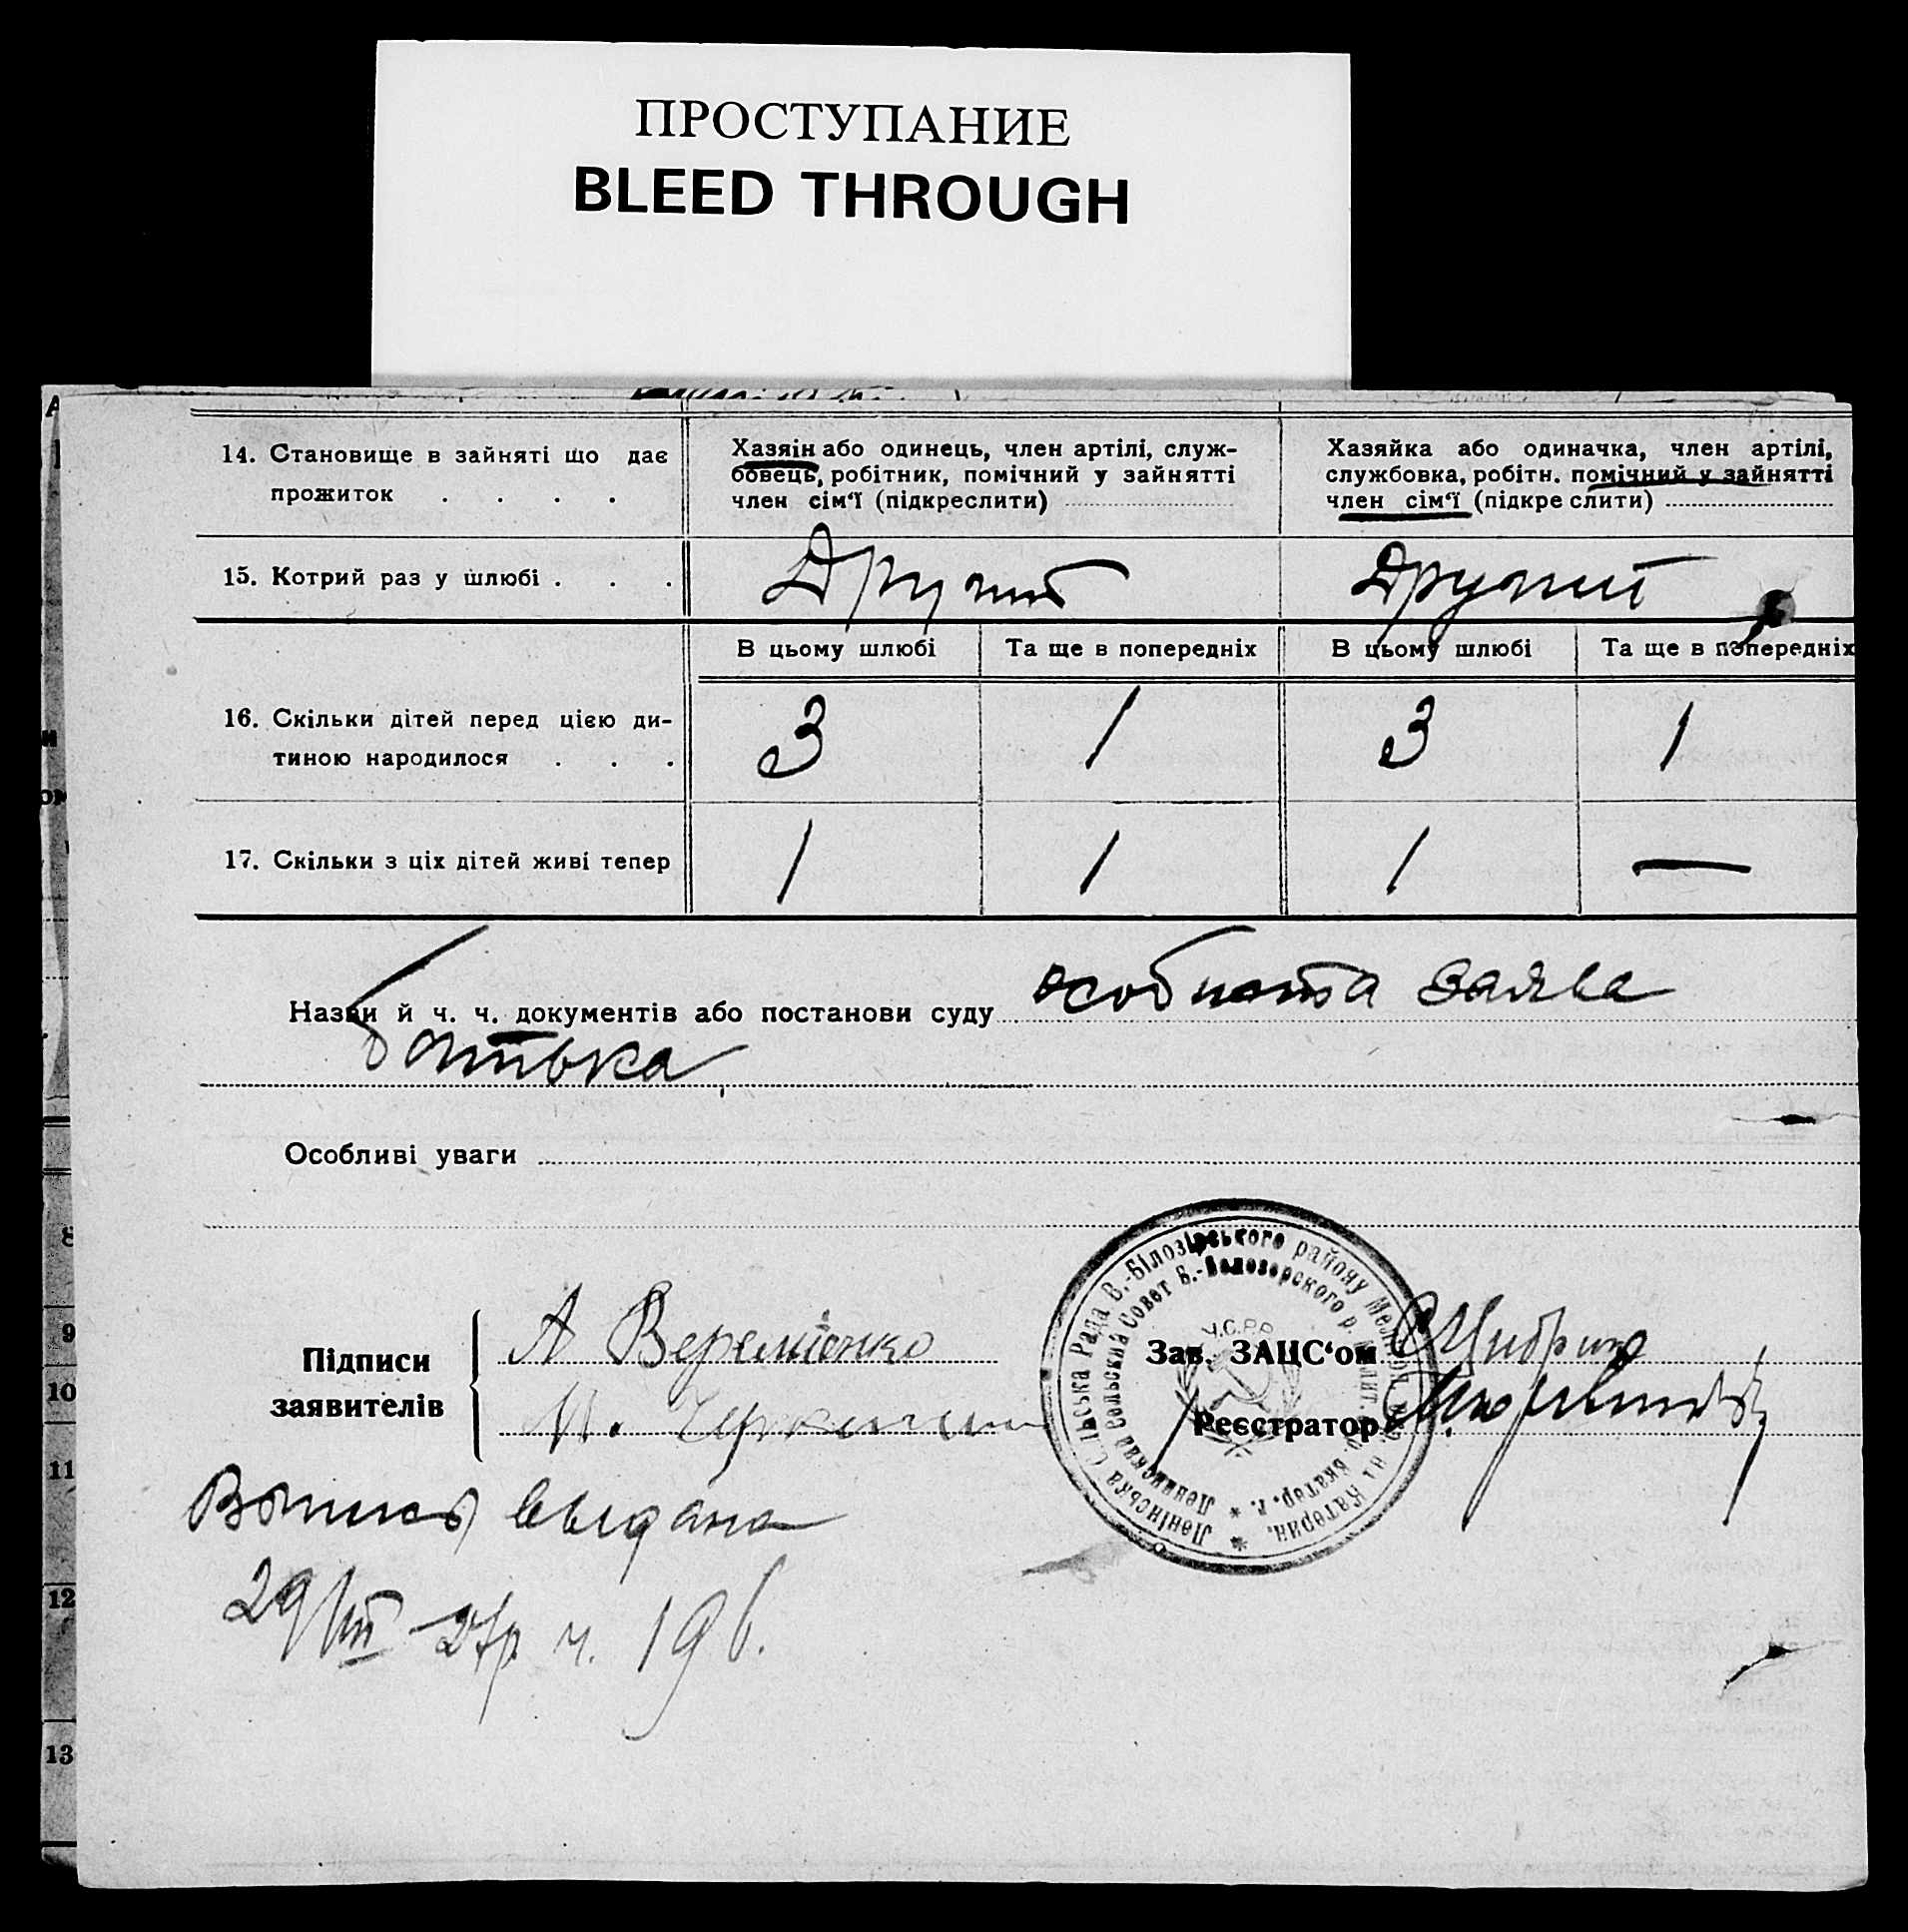 ПРОСТУПАНИЕ
BLEED THROUGH
14. Становище в зайняті що дає
прожиток . . . .
Хазяін або одинець, член артілі, служ-
бовець, робітник, помічний у зайнятті
член сім‘ї (підкреслити)
Хазяйка або одиначка, член артілі,
службовка, робітн. помічний у зайнятті
член сім‘ї (підкре слити)
15. Котрий раз у шлюбі . . .
Другий
Другий
В цьому шлюбі
Та ще в попередніх
В цьому шлюбі
Та ще в попередніх
16. Скільки дітей перед цією ди-
тиною народилося . . .
3
1
3
1
17. Скільки з ціх дітей живі тепер
1
1
1
—
Назви й ч. ч. документів або постанови суду особиста заява
батька
Особливі уваги
Підписи
заявителів
А Веремієнко
М.
Ленінська Сільська Рада В.-Білозірського району Катерин.
Ленинский Сельский Совет В.-Белозорского р. Екатер. г.
У.С.Р.Р.
Зав. ЗАЦС‘ом
Реєстратор
выдана
29/VIII ч. 196.
8
9
10
11
12
13